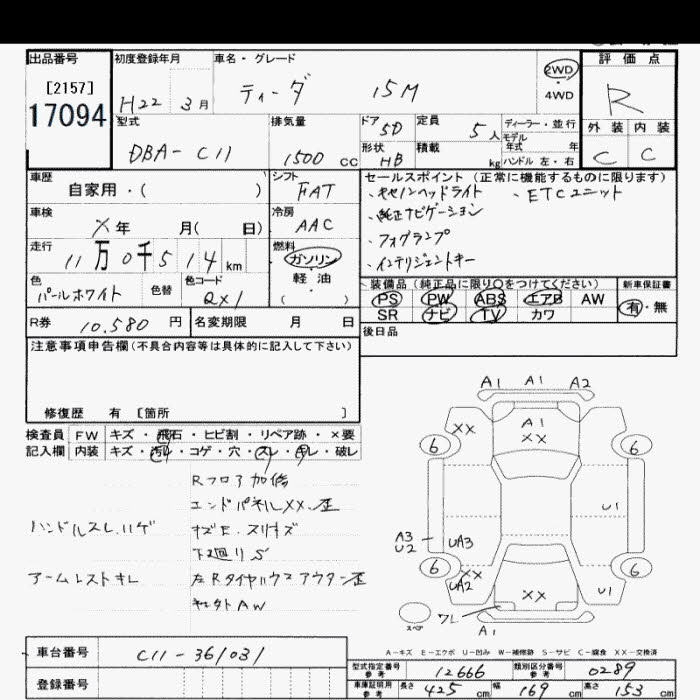 出品番号
[2157]
17094
初度登録年月
H22 3月
車名・グレード
ティーダ 15M
2WD
4WD
評価点
R
型式
DBA-C11
排気量
1500 cc
ドア 5D
定員 5人
ディーラー・並行
モデル
年式 年
形状 HB
積載 kg
ハンドル 左・右
外装 内装
C C
車歴
自家用・( )
シフト
FAT
セールスポイント (正常に機能するものに限ります)
、キセノンヘッドライト 、ETCユニット
、純正ナビゲーション
、フォグランプ
、インテリジェントキー
車検
X年 月( 日)
冷房
AAC
走行
11万0千514km
燃料
ガソリン
軽・油
( )
色
パールホワイト
色替
色コード
QX1
装備品 (純正品に限り○をつけてください)
新車保証書
PS PW ABS エアB AW
SR ナビ TV カワ
有・無
R券 10,580円
名変期限 月 日
後日品
注意事項申告欄(不具合内容等は具体的に記入して下さい)
修復歴 有 [箇所 ]
検査員
記入欄
FW キズ・飛石・ヒビ割・リペア跡・×要
内装 キズ・汚れ・コゲ・穴・スレ・キレ・破レ
Rフロア加修
エンドパネルXX、歪
ハンドルスレ、ハゲ
キズE、スリキズ
下廻りS
アームレストキレ
左Rタイヤハウスアウター歪
AW
A1 A1 A2
XX
A1
XX
6
6
U1
A3
U2
UA3
6
XX
UA2
XX
U1
6
スペア
ワレ
A1
A-キズ E-エクボ U-凹み W-補修跡 S-サビ C-腐食 XX-交換済
車台番号 C11-361031
登録番号
型式指定番号
参考
12666
類別区分番号
参考
0289
車庫証明用
参考
長さ 425cm 幅 169cm 高さ 153cm